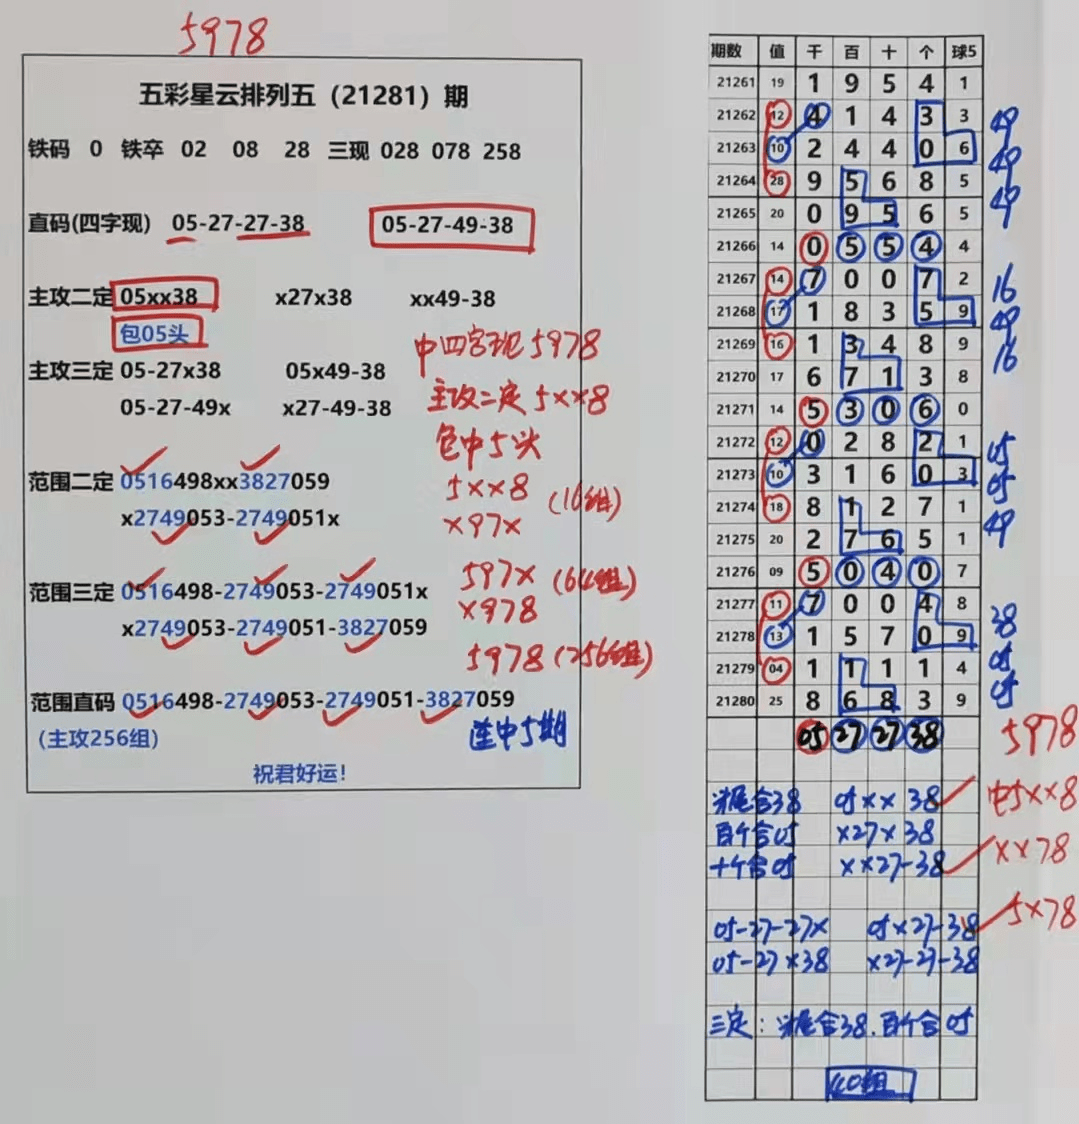 5978
五彩星云排列五（21281）期
铁码 0 铁卒 02 08 28 三现 028 078 258
直码(四字现) 05-27-27-38 05-27-49-38
主攻二定 05xx38 x27x38 xx49-38
包05头
中四字现5978
主攻三定 05-27x38 05x49-38
主攻二定5xx8
05-27-49x x27-49-38
包中5头
范围二定 0516498xx3827059
5xx8 (16组)
x2749053-2749051x
x97x
范围三定 0516498-2749053-2749051x
597x (64组)
x2749053-2749051-3827059
x978
5978 (256组)
范围直码 0516498-2749053-2749051-3827059
(主攻256组)
连中5期
祝君好运!
期数 值 千 百 十 个 球5
21261 19 1 9 5 4 1
21262 12 4 1 4 3 3 49
21263 10 2 4 4 0 6 49
21264 28 9 5 6 8 5 49
21265 20 0 9 5 6 5
21266 14 0 5 5 4 4
21267 14 7 0 0 7 2 16
21268 17 1 8 3 5 9 49
21269 16 1 3 4 8 9 16
21270 17 6 7 1 3 8
21271 14 5 3 0 6 0
21272 12 0 2 8 2 1 05
21273 10 3 1 6 0 3 05
21274 18 8 1 2 7 1 49
21275 20 2 7 6 5 1
21276 09 5 0 4 0 7
21277 11 7 0 0 4 8 38
21278 13 1 5 7 0 9 05
21279 04 1 1 1 1 4 05
21280 25 8 6 8 3 9
05 27 27 38 5978
尾合38 05xx 38 中5xx8
百个合05 x27x 38
十个合05 xx27-38 xx78
05-27-27x 05x27-38 5x78
05-27x38 x27-27-38
三定: 尾合38.百个合05
40组